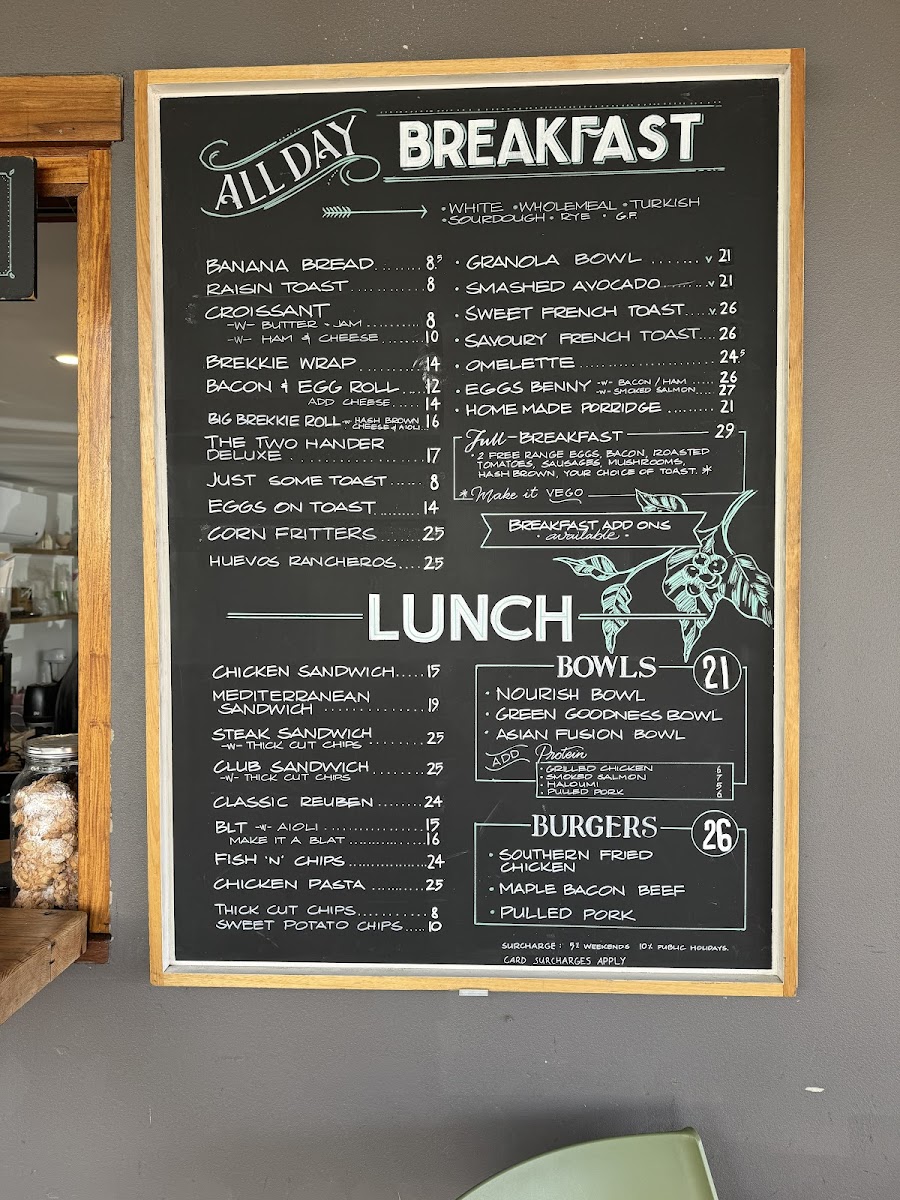 ALL DAY BREAKFAST
• WHITE • WHOLEMEAL • TURKISH
• SOURDOUGH • RYE • G.F.
BANANA BREAD ........ 8.5
RAISIN TOAST ........ 8
CROISSANT ........ 8
-W- BUTTER + JAM ........ 8
-W- HAM & CHEESE ....... 10
BREKKIE WRAP ........ 14
BACON & EGG ROLL .... 12
ADD CHEESE ..... 14
BIG BREKKIE ROLL -W- HASH BROWN
CHEESE & AIOLI .. 16
THE TWO HANDER
DELUXE ........ 17
JUST SOME TOAST .... 8
EGGS ON TOAST ..... 14
CORN FRITTERS ..... 25
HUEVOS RANCHEROS .... 25
• GRANOLA BOWL ....... V 21
• SMASHED AVOCADO ....... V 21
• SWEET FRENCH TOAST .... V. 26
• SAVOURY FRENCH TOAST .... 26
• OMELETTE ........ 24.5
• EGGS BENNY -W- BACON / HAM ..... 26
-W- SMOKED SALMON .... 27
• HOME MADE PORRIDGE ......... 21
Full-BREAKFAST 29
• 2 FREE RANGE EGGS, BACON, ROASTED
TOMATOES, SAUSAGES, MUSHROOMS,
HASH BROWN, YOUR CHOICE OF TOAST. *
* Make it VEGO
BREAKFAST ADD ONS
• available •
LUNCH
CHICKEN SANDWICH ..... 15
MEDITERRANEAN
SANDWICH ........ 19
STEAK SANDWICH
-W- THICK CUT CHIPS ........ 25
CLUB SANDWICH ........ 25
-W- THICK CUT CHIPS
CLASSIC REUBEN ........ 24
BLT -W- AIOLI ........ 15
MAKE IT A BLAT ........ 16
FISH 'N' CHIPS ........ 24
CHICKEN PASTA ........ 25
THICK CUT CHIPS ........ 8
SWEET POTATO CHIPS ..... 10
BOWLS 21
• NOURISH BOWL
• GREEN GOODNESS BOWL
• ASIAN FUSION BOWL
ADD Protein
• GRILLED CHICKEN 6
• SMOKED SALMON 7
• HALOUMI 5
• PULLED PORK 6
BURGERS 26
• SOUTHERN FRIED
CHICKEN
• MAPLE BACON BEEF
• PULLED PORK
SURCHARGE : 5% WEEKENDS 10% PUBLIC HOLIDAYS.
CARD SURCHARGES APPLY